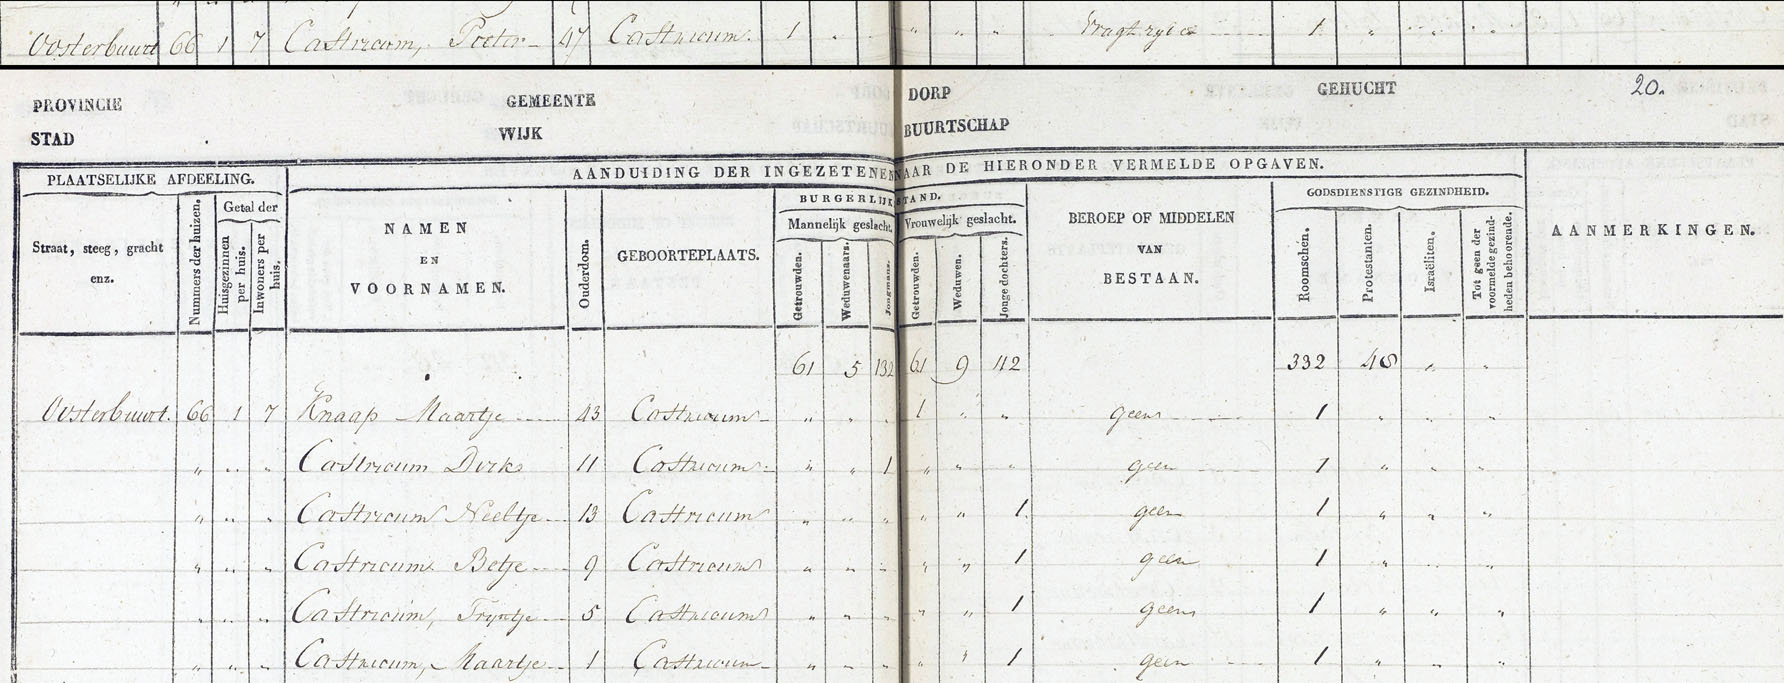 Oosterbuurt 66 1 7 Castricum, Pieter 47 Castricum 1 " " " " " Vragtryder 1 " " "
PROVINCIE GEMEENTE DORP GEHUCHT 20.
STAD WIJK BUURTSCHAP
AANDUIDING DER INGEZETENEN NAAR DE HIERONDER VERMELDE OPGAVEN.
PLAATSELIJKE AFDEELING. BURGERLIJKE STAND. GODSDIENSTIGE GEZINDHEID.
Straat, steeg, gracht enz. Nummers der huizen. Getal der Huisgezinnen per huis. Inwoners per huis. NAMEN EN VOORNAMEN. Ouderdom. GEBOORTEPLAATS. Mannelijk geslacht. Getrouwden. Weduwenaars. Jongmans. Vrouwelijk geslacht. Getrouwden. Weduwen. Jonge dochters. BEROEP OF MIDDELEN VAN BESTAAN. Roomschen. Protestanten. Israëliten. Tot geen der voormelde gezindheden behoorende. AANMERKINGEN.
61 5 132 61 9 112 332 48 " "
Oosterbuurt. 66 1 7 Knaap Maartje 43 Castricum " " " 1 " " geen 1 " " "
" " " Castricum Dirk 11 Castricum " " 1 " " " geen 1 " " "
" " " Castricum Neeltje 13 Castricum " " " " " 1 geen 1 " " "
" " " Castricum Betje 9 Castricum " " " " " 1 geen 1 " " "
" " " Castricum, Tryntje 5 Castricum " " " " " 1 geen 1 " " "
" " " Castricum, Maartje 1 Castricum " " " " " 1 geen 1 " " "